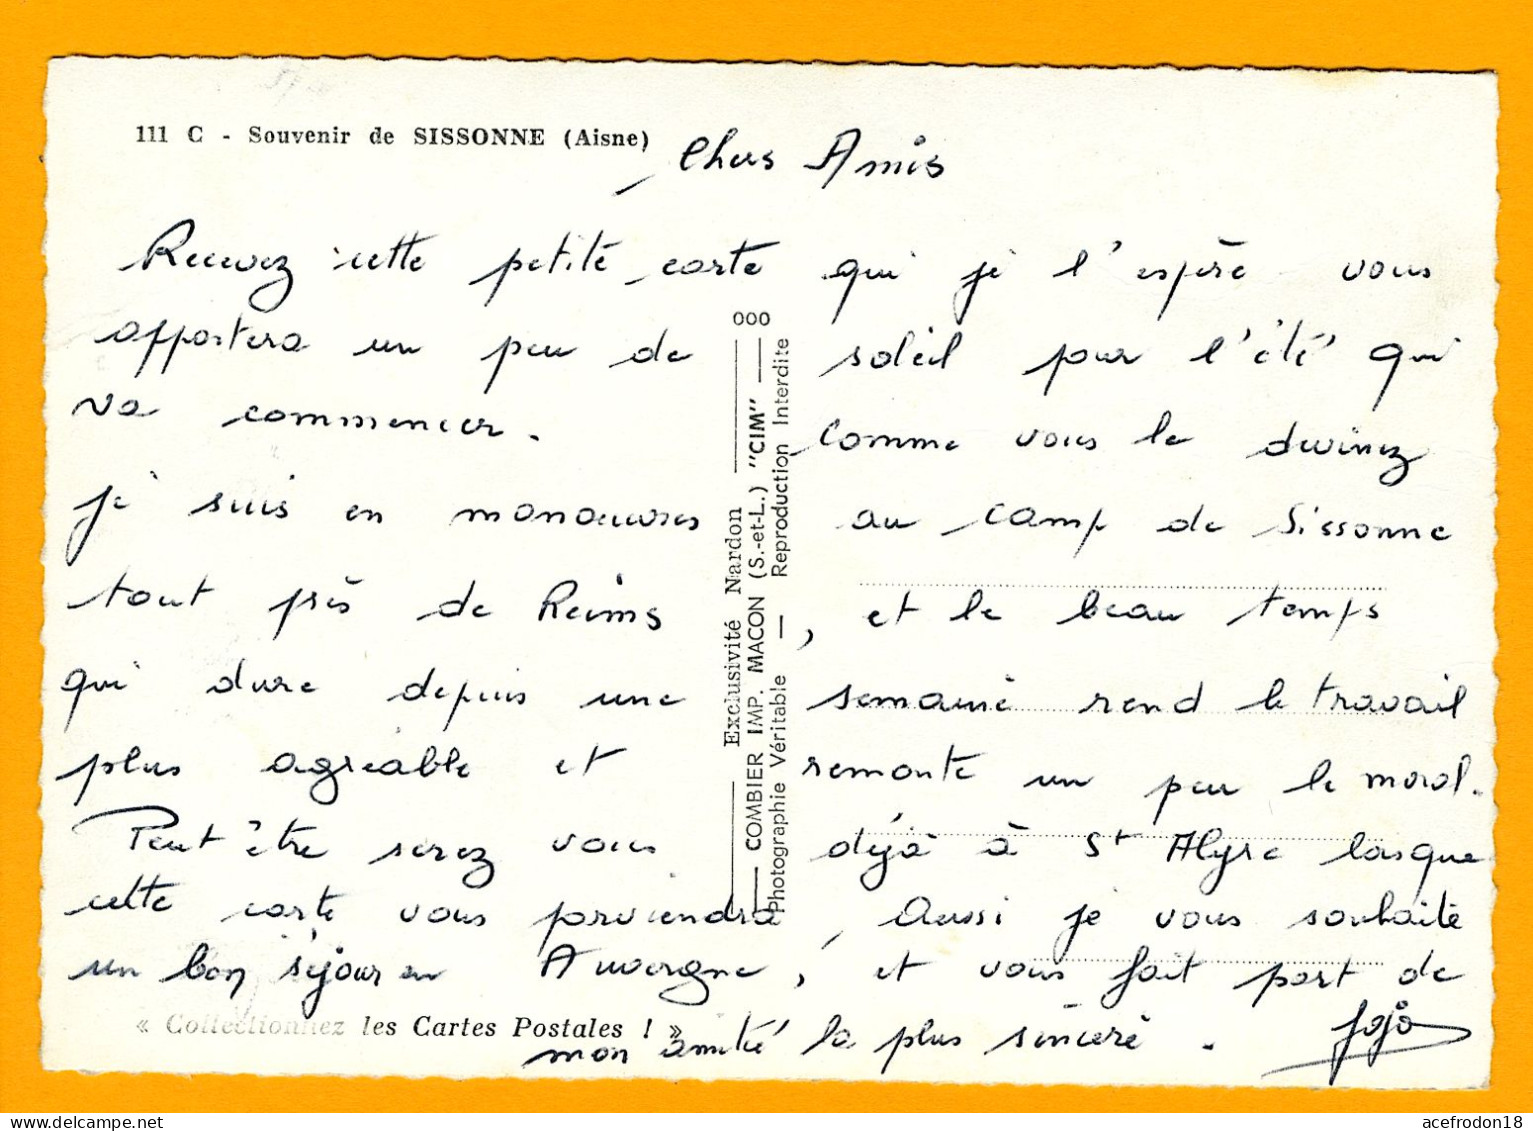 111 C - Souvenir de SISSONNE (Aisne)
Chers Amis
Recevez cette petite carte qui je l'espère vous
apportera un peu de soleil pour l'été qui
va commencer. Comme vous le devinez
je suis en manoeuvres au camp de Sissonne
tout près de Reims, et le beau temps
qui dure depuis une semaine rend le travail
plus agréable et remonte un peu le moral.
Peut être serez vous déjà à St Alyre lorsque
cette carte vous parviendra, Aussi je vous souhaite
un bon séjour en Auvergne, et vous fait part de
mon amitié la plus sincère.
Jojo
« Collectionnez les Cartes Postales ! »
000
Exclusivité Nardon
COMBIER IMP. MACON (S.-et-L.) "CIM"
Photographie Véritable — Reproduction Interdite
acefrodon18